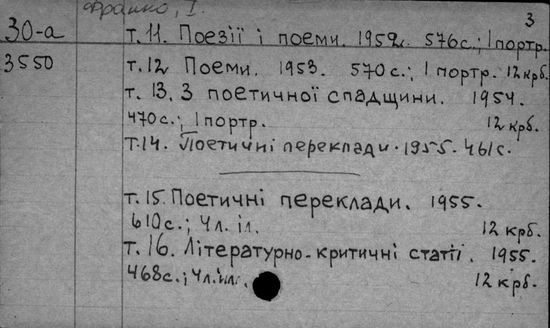 Франко, І.
3
30-а
т.11. Поезії і поеми. 1952. 576с.; 1 портр.
3550
т.12 Поеми. 1953. 570с.; 1 портр. 12 крб.
т. 13. З поетичної спадщини. 1954.
470с.; 1 портр. 12 крб.
т.14. Поетичні переклади. 1955. 461с.
т.15. Поетичні переклади. 1955.
610с.; 4л. іл. 12 крб.
т. 16. Літературно-критичні статті. 1955.
468с.; 4л. іл. 12 крб.